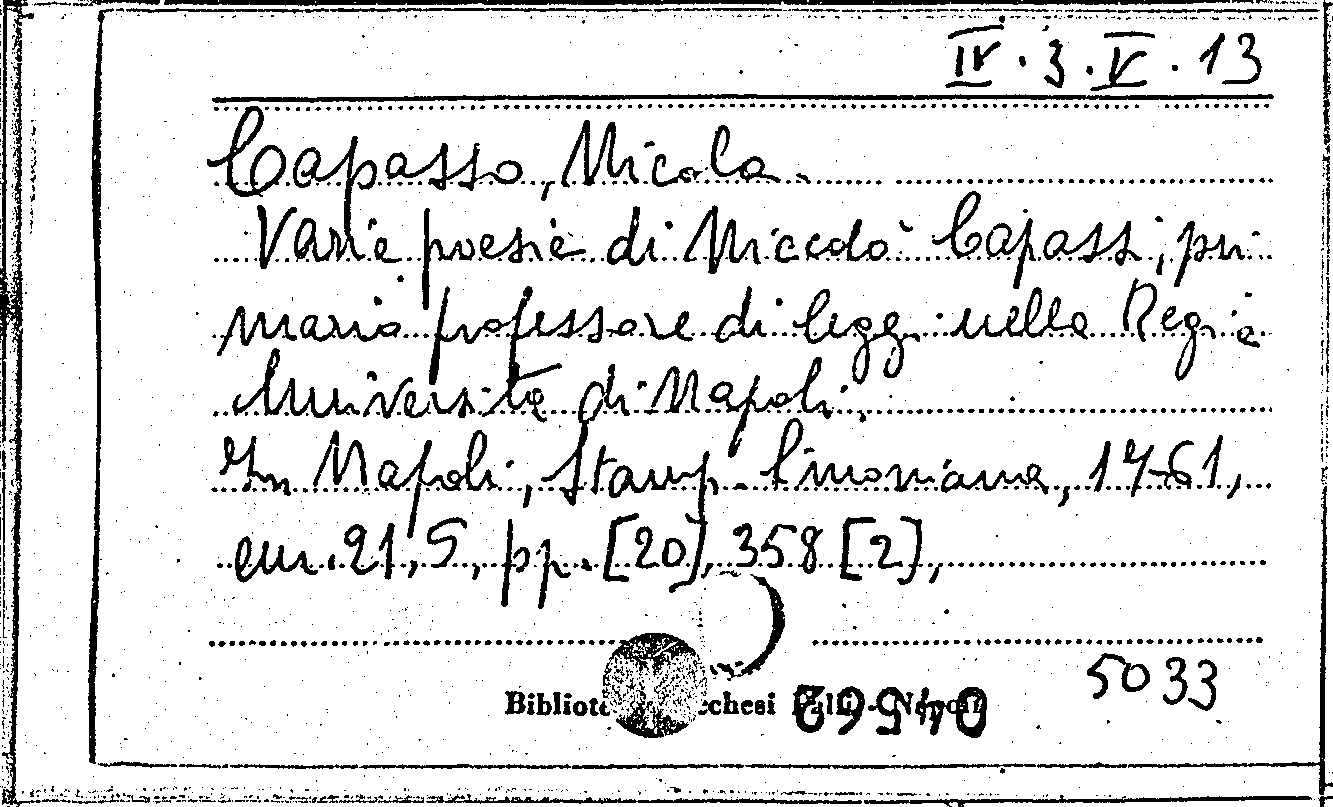 IV.3.V.13
Capasso, Nicola.
Varie poesie di Niccolò Capassi, pri
mario professore di leggi nella Regia
Università di Napoli.
In Napoli, Stamp. Simoniana, 1761,
cm. 21,5, pp. [20], 358 [2],
5033